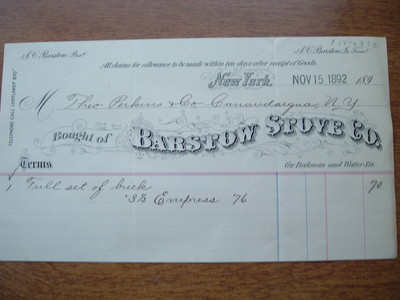 A. C. Barstow Pres't A. C. Barstow Jr. Treas'r
All claims for allowance to be made within ten days after receipt of Goods.
New York. NOV 15 1892 189
M Theo Perkins & Co Canandaigua, N.Y.
Bought of BARSTOW STOVE CO.
Terms Cor. Beekman and Water Sts.
1 Full set of brick 70
"3½ Empress '76